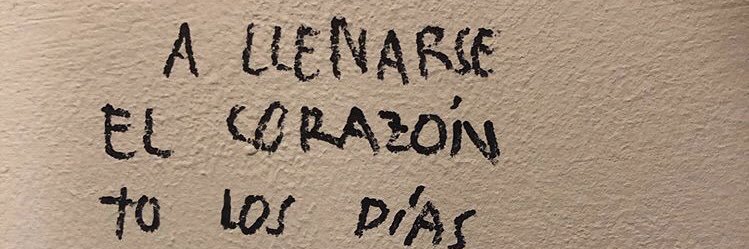 A LLENARSE
EL CORAZÓN
TO LOS DÍAS